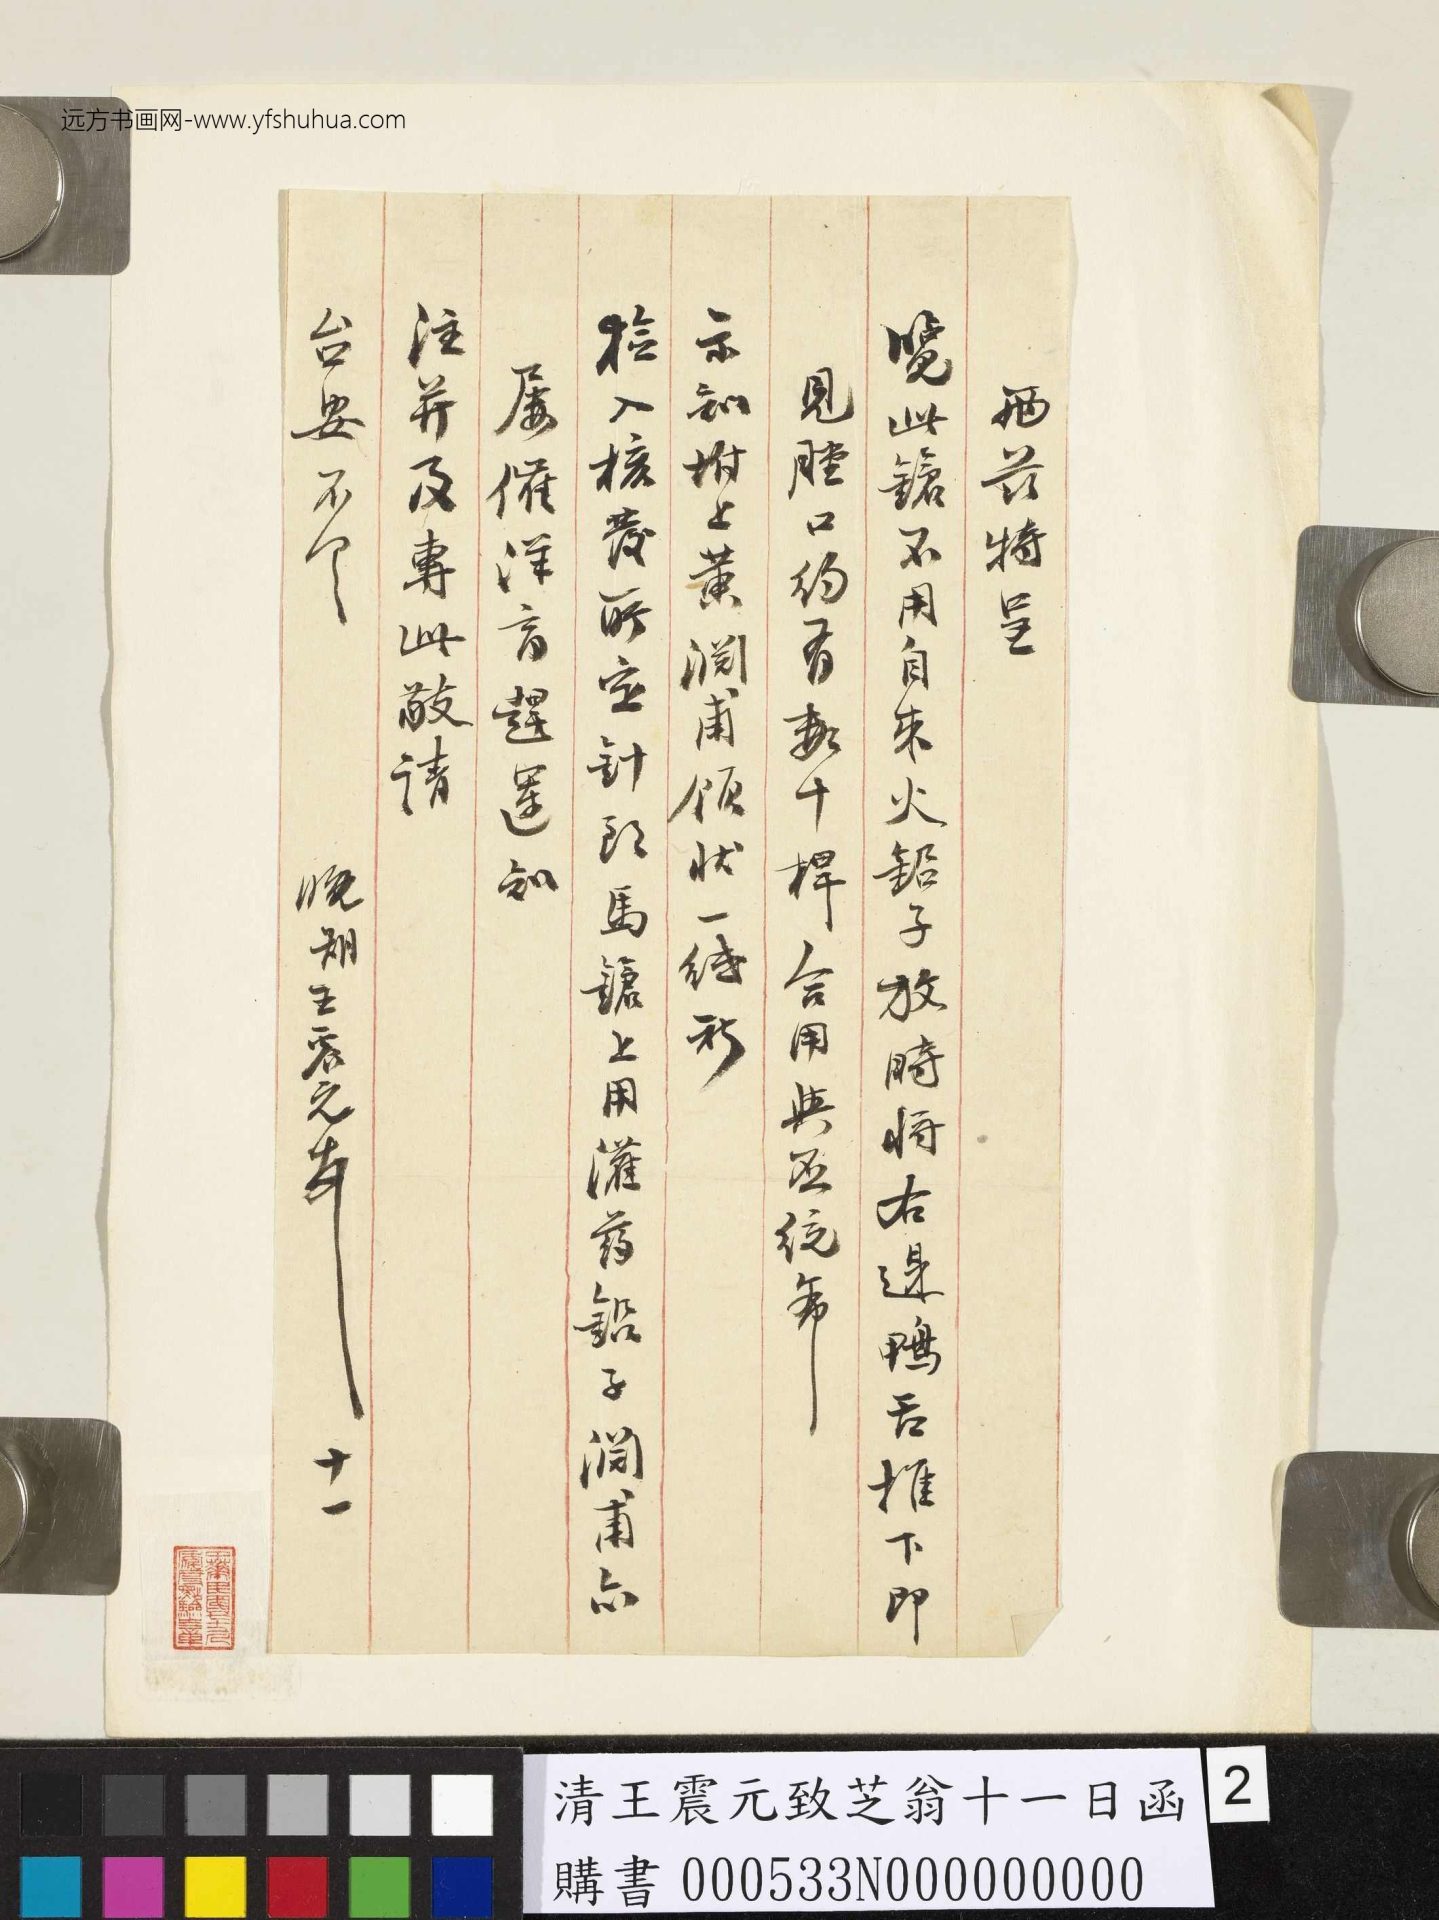 远方书画网-www.yfshuhua.com
兹特呈
覽此鎗不用自來火鉛子放時將右邊鴨舌推下即
見膛口約有數十桿合用與否統希
示知坿上黃潤甫領狀一紙祈
檢入核發所定針馬鎗上用灌藥鉛子潤甫亦
屢催洋商趕運知
注并及專此敬請
台安不一
晚期王震元
十一
清王震元致芝翁十一日函
購書 000533N000000000
2